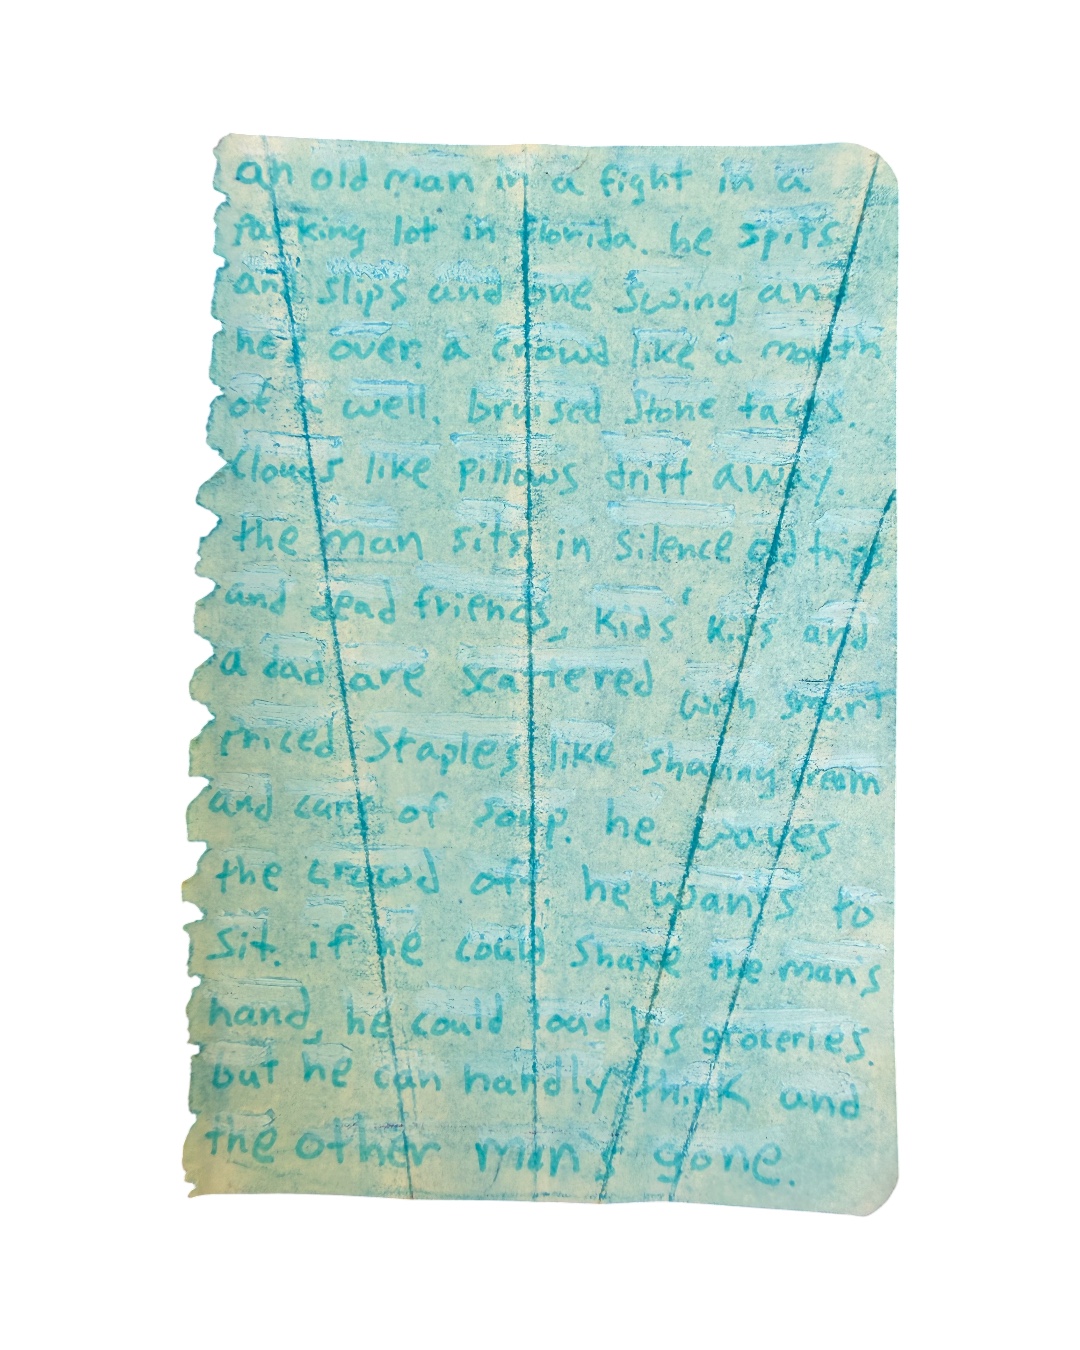 an old man in a fight in a
parking lot in florida. he spits
and slips and one swing and
he's over. a crowd like a mouth
of a well. bruised stone faces.
clouds like pillows drift away.
the man sits in silence old trips
and dead friends, kids' kids and
a dad are scattered with smart
priced staples like shaving cream
and cans of soup. he waves
the crowd off. he wants to
sit. if he could shake the man's
hand, he could load his groceries.
but he can hardly think and
the other man's gone.